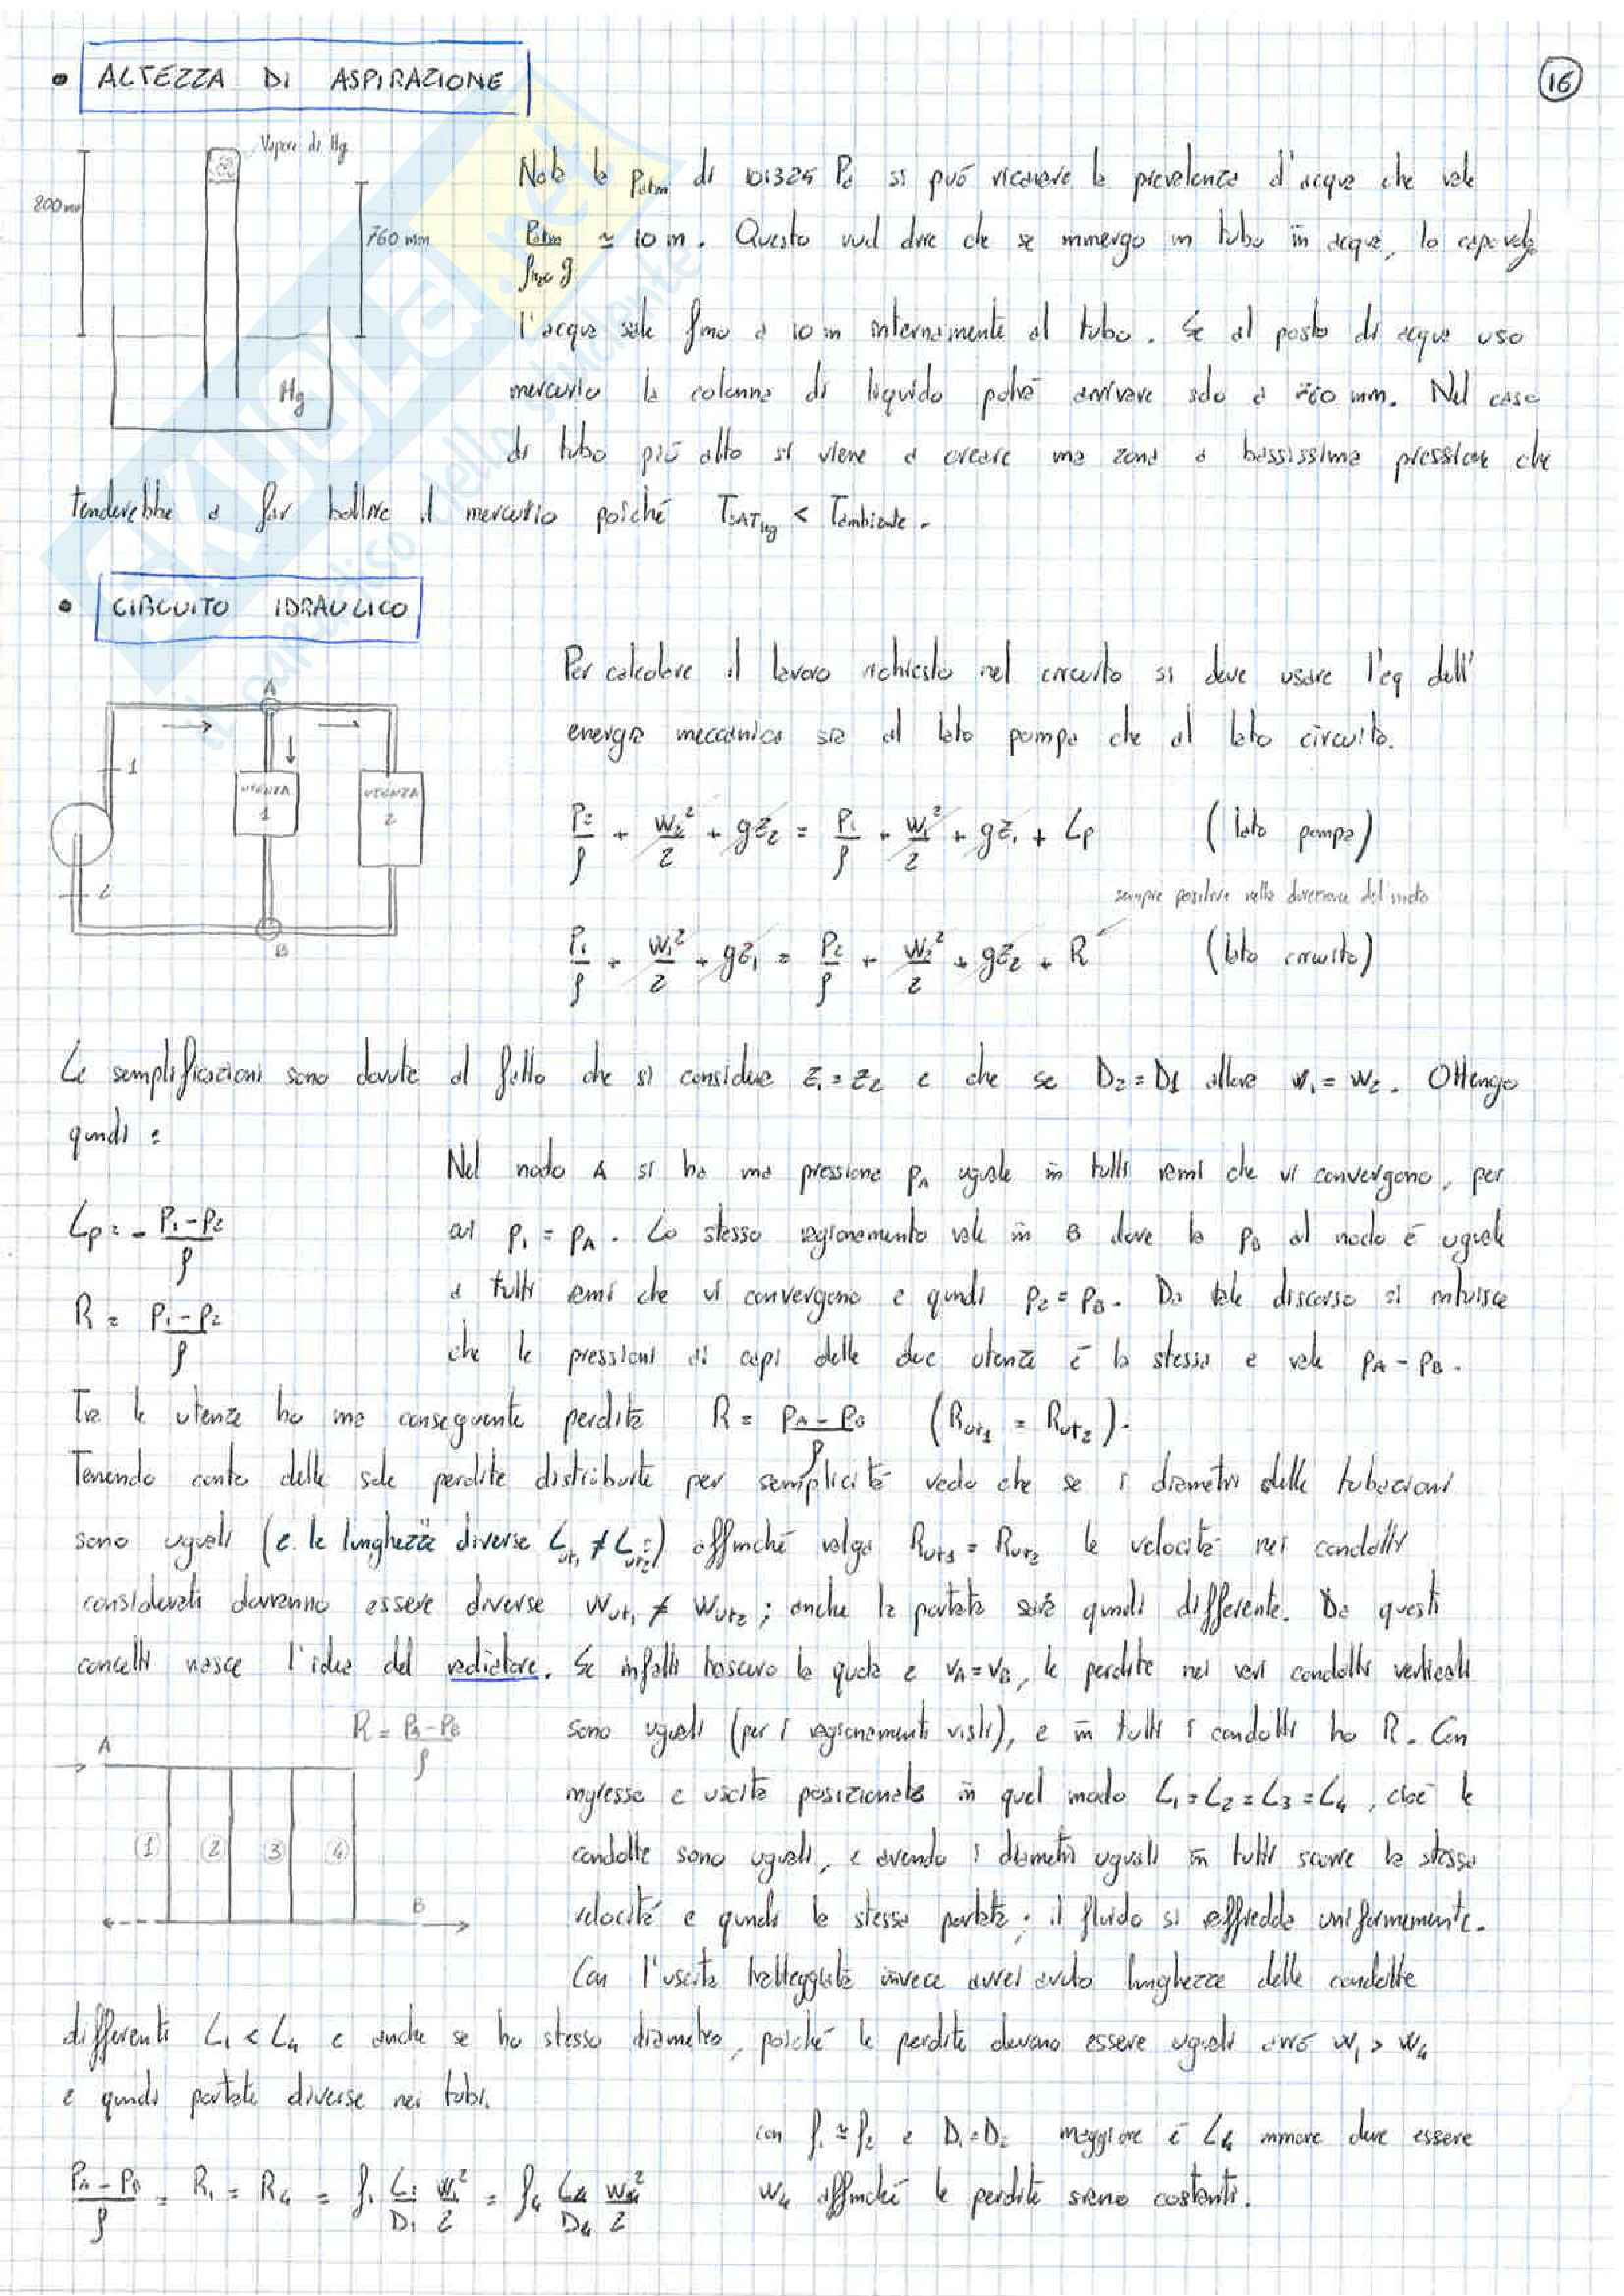 • ALTEZZA DI ASPIRAZIONE
16
Vapore di Hg
800 mm
760 mm
Hg
Nota la Patm di 101325 Pa si può ricavare la prevalenza d'acqua che vale
Patm / ρH2O g ≃ 10 m. Questo vuol dire che se immergo un tubo in acqua, lo capovolgo
l'acqua sale fino a 10 m internamente al tubo. Se al posto di acqua uso
mercurio la colonna di liquido potrà arrivare solo a 760 mm. Nel caso
di tubo più alto si viene a creare una zona a bassissima pressione che
tenderebbe a far bollire il mercurio poiché TSATHg < Tambiente.
• CIRCUITO IDRAULICO
A
1
UTENZA 1
UTENZA 2
2
B
Per calcolare il lavoro richiesto nel circuito si deve usare l'eq dell'
energia meccanica sia al lato pompa che al lato circuito.
P2/ρ + w2²/2 + gz2 = P1/ρ + w1²/2 + gz1 + Lp (lato pompa)
sempre positive nella direzione del moto
P1/ρ + w1²/2 + gz1 = P2/ρ + w2²/2 + gz2 + R (lato circuito)
Le semplificazioni sono dovute al fatto che si considera z1 = z2 e che se D2 = D1 allora w1 = w2. Ottengo
quindi :
Lp = - P1-P2 / ρ
R = P1-P2 / ρ
Nel nodo A si ha una pressione pA uguale in tutti rami che vi convergono, per
cui p1 = pA. Lo stesso ragionamento vale in B dove la pB al nodo è uguale
a tutti rami che vi convergono e quindi p2 = pB. Da tale discorso si intuisce
che le pressioni ai capi delle due utenze è la stessa e vale pA - pB.
Tra le utenze ho una conseguente perdita R = pA - pB / ρ (Rut1 = Rut2).
Tenendo conto delle sole perdite distribuite per semplicità vedo che se i diametri delle tubazioni
sono uguali (e le lunghezze diverse Lut1 ≠ Lut2) affinché valga Rut1 = Rut2 le velocità nei condotti
considerati dovranno essere diverse wut1 ≠ wut2 ; anche la portata sarà quindi differente. Da questi
concetti nasce l'idea del radiatore. Se infatti trascuro la quota e vA = vB, le perdite nei vari condotti verticali
R = PA-PB / ρ
A
1 2 3 4
B
sono uguali (per i ragionamenti visti), e in tutti i condotti ho R. Con
ingresso e uscita posizionate in quel modo L1 = L2 = L3 = L4, cioè le
condotte sono uguali, e avendo i diametri uguali in tutti scorre la stessa
velocità e quindi la stessa portata ; il fluido si raffredda uniformemente.
Con l'uscita tratteggiata invece avrei avuto lunghezze delle condotte
differenti L1 < L4 e anche se ho stesso diametro, poiché le perdite devono essere uguali avrò w1 > w4
e quindi portate diverse nei tubi.
PA-PB / ρ = R1 = R4 = f1 L1/D1 w1²/2 = f4 L4/D4 w4²/2
con f1 ≃ f2 e D1 = D2 maggiore è L4 minore deve essere
w4 affinché le perdite siano costanti.